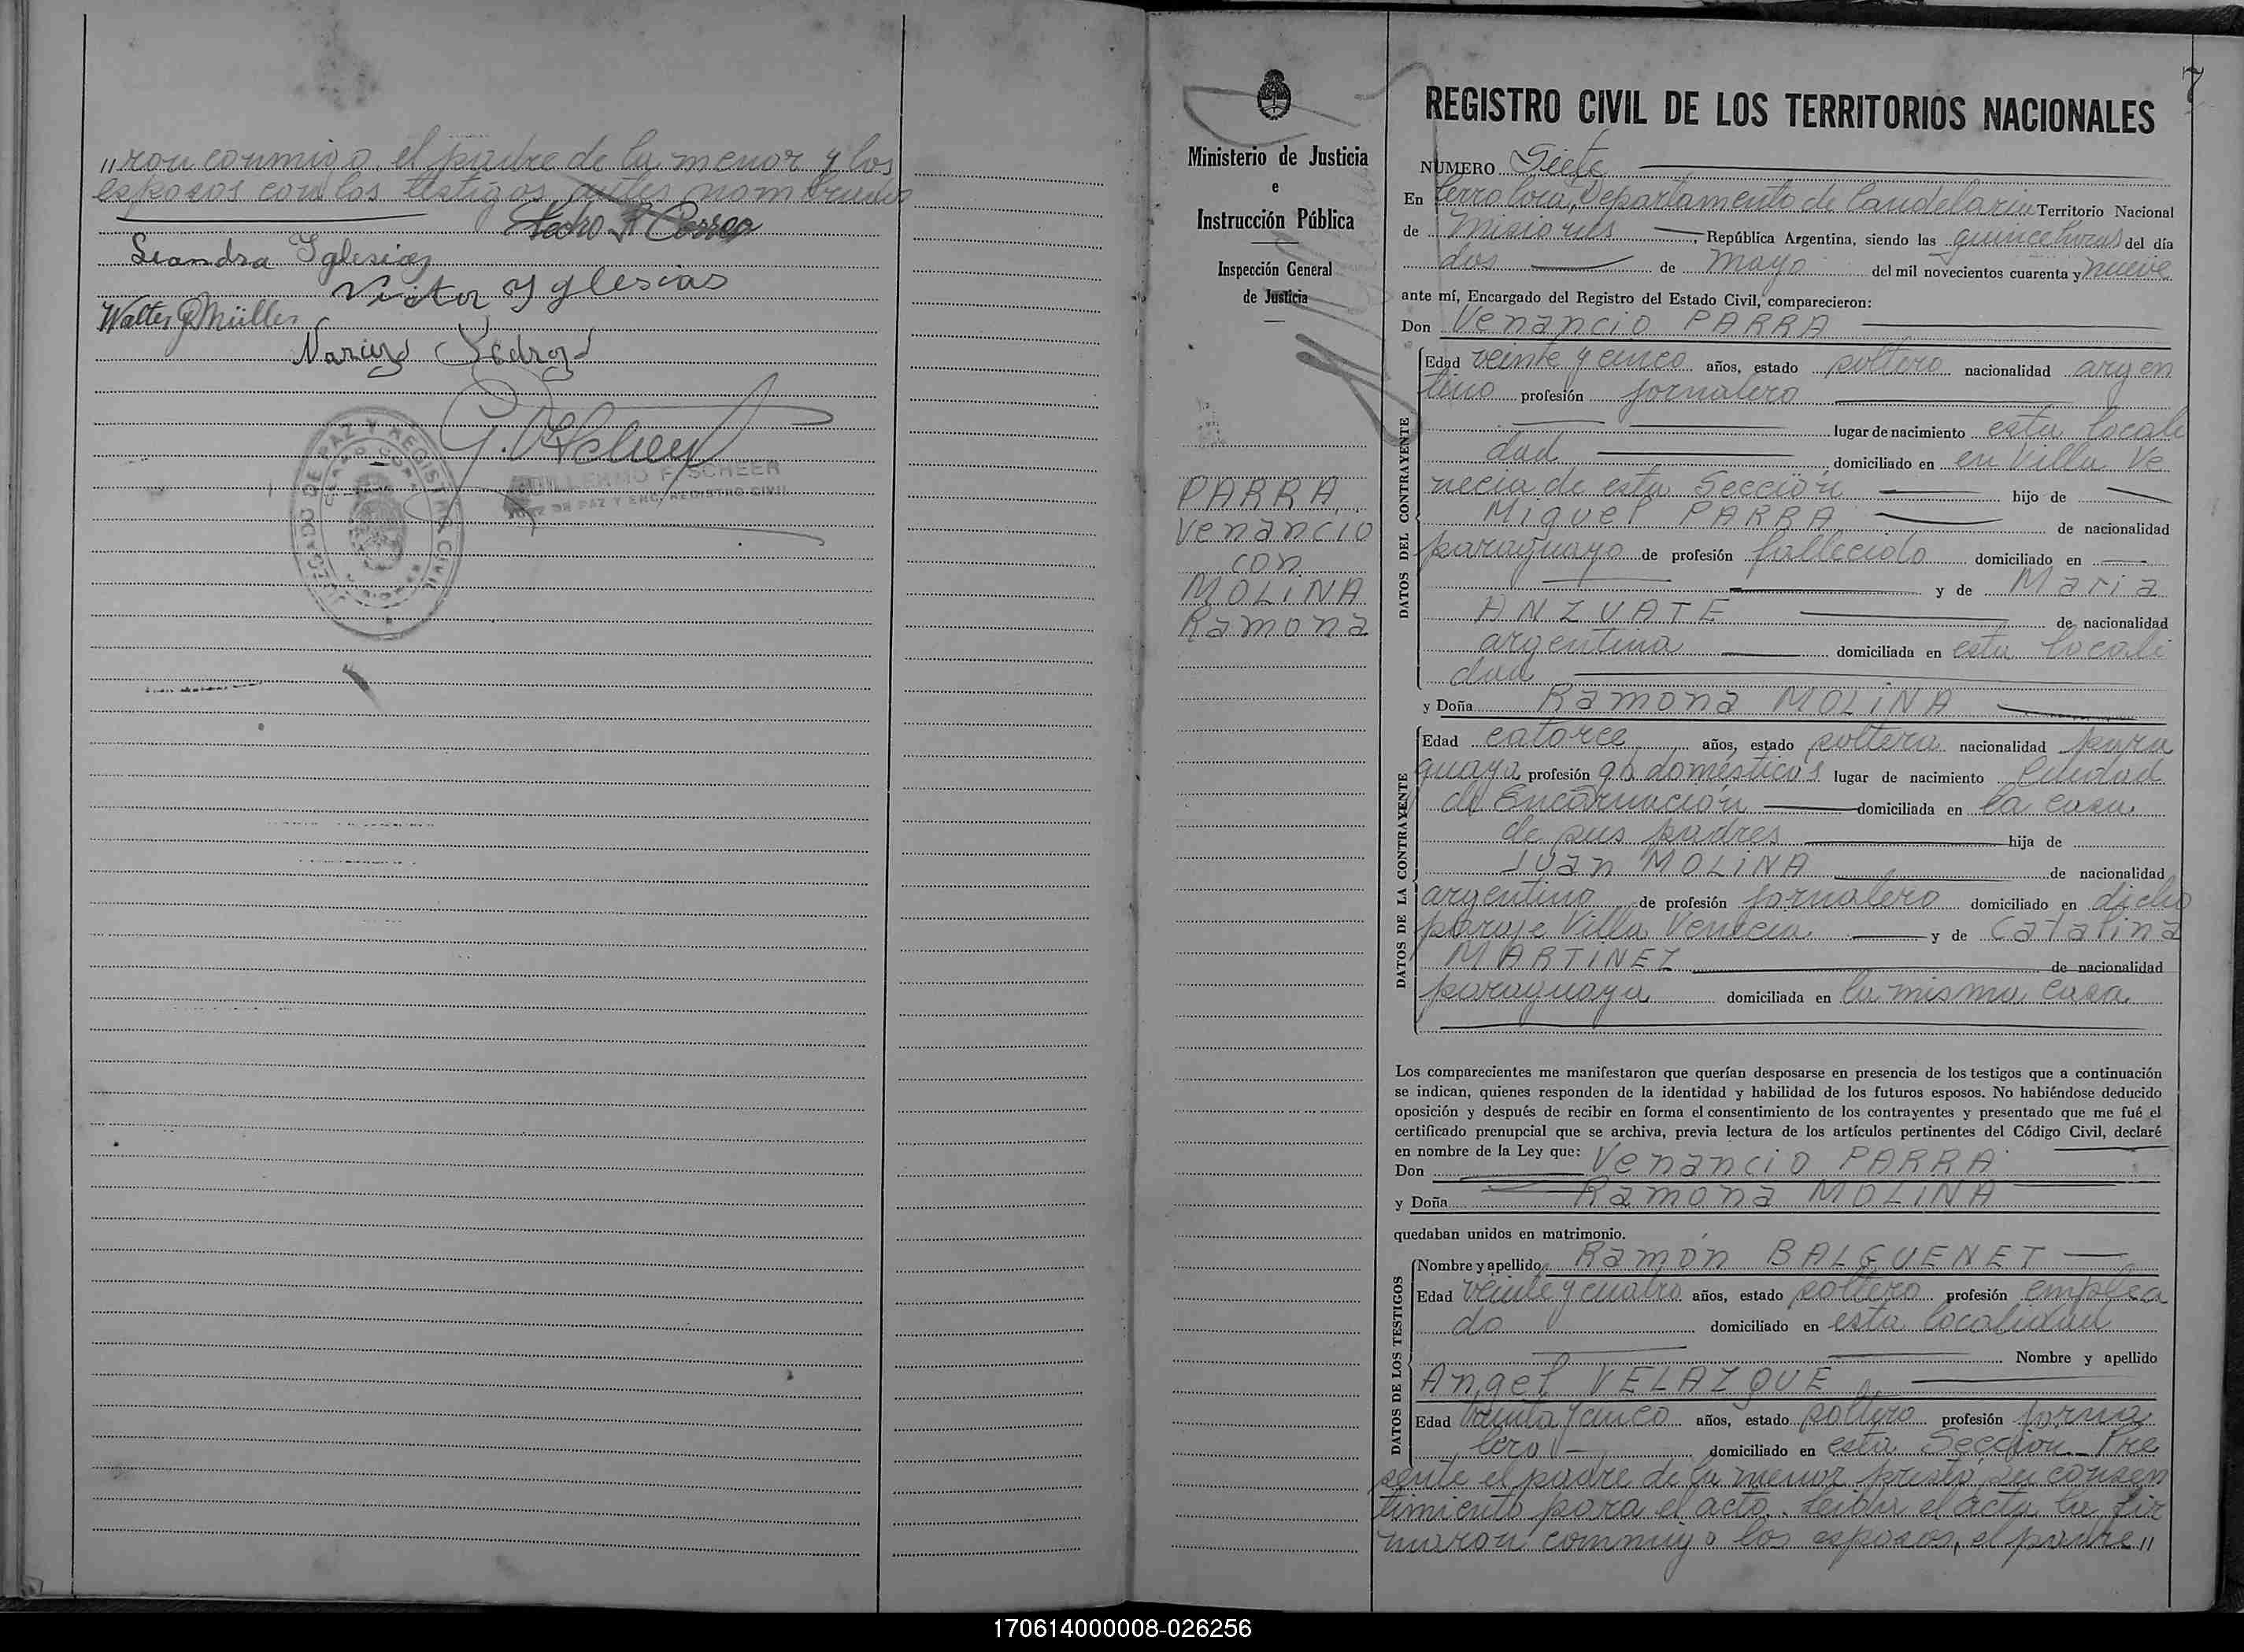 "ron conmigo el padre de la menor y los
esposos con los testigos antes nombrados
Pedro R Correa
Leandra Yglesias
Victor Yglesias
Walter Müller
G. Scheer
JUZGADO DE PAZ Y REGISTRO CIVIL
GUILLERMO F. SCHEER
JUEZ DE PAZ Y ENC. REGISTRO CIVIL
7
Ministerio de Justicia
e
Instrucción Pública
Inspección General
de Justicia
PARRA
Venancio
con
MOLINA
Ramona
REGISTRO CIVIL DE LOS TERRITORIOS NACIONALES
NUMERO Siete
En Cerro Corá, Departamento de Candelaria Territorio Nacional
de Misiones, República Argentina, siendo las quince horas del día
dos de mayo del mil novecientos cuarenta y nueve
ante mí, Encargado del Registro del Estado Civil, comparecieron:
Don Venancio PARRA
DATOS DEL CONTRAYENTE
Edad veinte y cinco años, estado soltero nacionalidad argen
tino profesión jornalero
lugar de nacimiento esta locali
dad domiciliado en en Villa Ve
necia de esta Sección hijo de
Miguel PARRA de nacionalidad
paraguayo de profesión fallecido domiciliado en
y de Maria
ANZUATE de nacionalidad
argentina domiciliada en esta locali
dad
y Doña Ramona MOLINA
DATOS DE LA CONTRAYENTE
Edad catorce años, estado soltera nacionalidad para
guaya profesión qh. domésticos lugar de nacimiento Ciudad
de Encarnación domiciliada en la casa
de sus padres hija de
Juan MOLINA de nacionalidad
argentino de profesión jornalero domiciliado en dicho
paraje Villa Venecia y de Catalina
MARTINEZ de nacionalidad
paraguaya domiciliada en la misma casa
Los comparecientes me manifestaron que querían desposarse en presencia de los testigos que a continuación
se indican, quienes responden de la identidad y habilidad de los futuros esposos. No habiéndose deducido
oposición y después de recibir en forma el consentimiento de los contrayentes y presentado que me fué el
certificado prenupcial que se archiva, previa lectura de los artículos pertinentes del Código Civil, declaré
en nombre de la Ley que:
Don Venancio PARRA
y Doña Ramona MOLINA
quedaban unidos en matrimonio.
DATOS DE LOS TESTIGOS
Nombre y apellido Ramón BALGUENET
Edad veinte y cuatro años, estado soltero profesión emplea
do domiciliado en esta localidad
Nombre y apellido
Angel VELAZQUE
Edad treinta y cinco años, estado soltero profesión jorna
lero domiciliado en esta Sección_ Pre
sente el padre de la menor prestó su consen
timiento para el acto. Leida el acta la fir
maron conmigo los esposos, el padre"
170614000008-026256